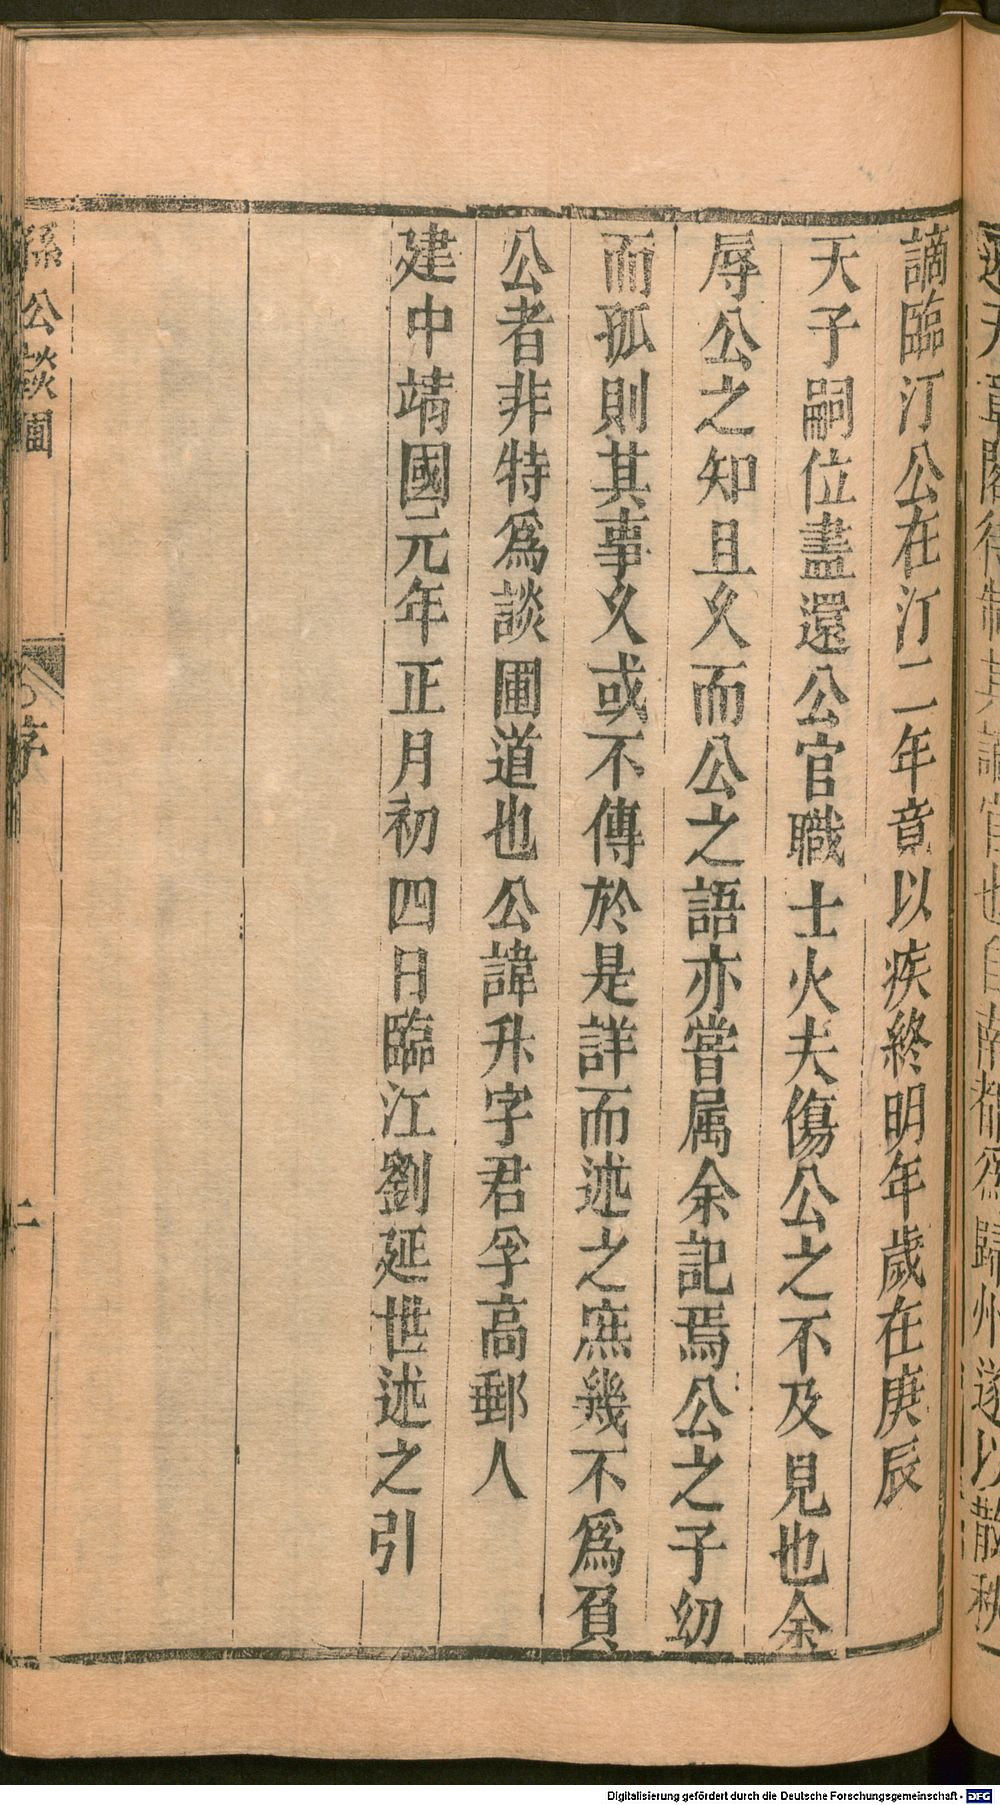 謫臨汀公在汀二年竟以疾終明年歲在庚辰
天子嗣位盡還公官職士火夫傷公之不及見也余
辱公之知且乆而公之語亦嘗属余記焉公之子幼
而孤則其事乆或不傳於是詳而述之庶幾不爲負
公者非特爲談圃道也公諱升字君孚高郵人
建中靖國元年正月初四日臨江劉延世述之引
孫公談圃
序
二
Digitalisierung gefördert durch die Deutsche Forschungsgemeinschaft - DFG